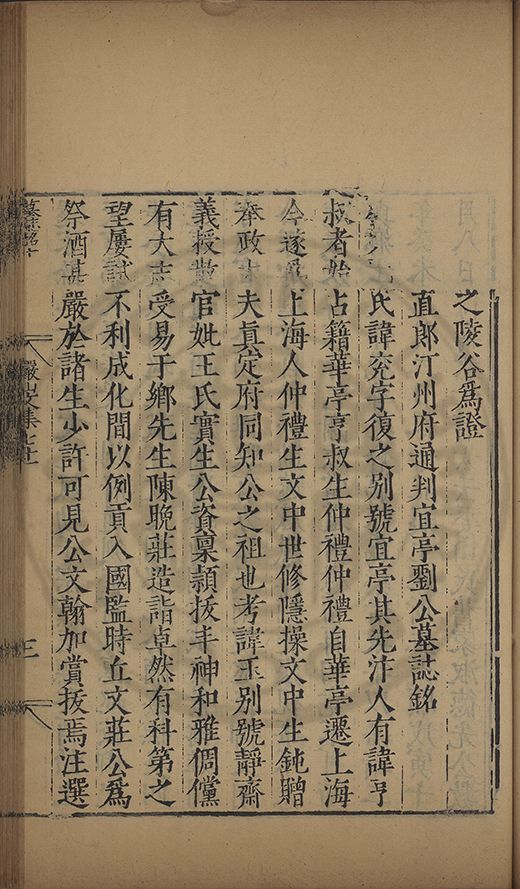 之陵谷爲證
直郎汀州府通判宜亭劉公墓誌銘
氏諱兗字復之别號宜亭其先汴人有諱亨
叔者始占籍華亭亨叔生仲禮仲禮自華亭遷上海
今遂爲上海人仲禮生文中世修隱操文中生鈍贈
奉政大夫眞定府同知公之祖也考諱玉别號靜齋
義授散官妣王氏實生公資稟頴拔丰神和雅倜儻
有大志受易于鄉先生陳晚莊造詣卓然有科第之
望屢試不利成化間以例貢入國監時丘文莊公爲
祭酒甚嚴於諸生少許可見公文翰加賞拔焉注選
墓誌銘
三